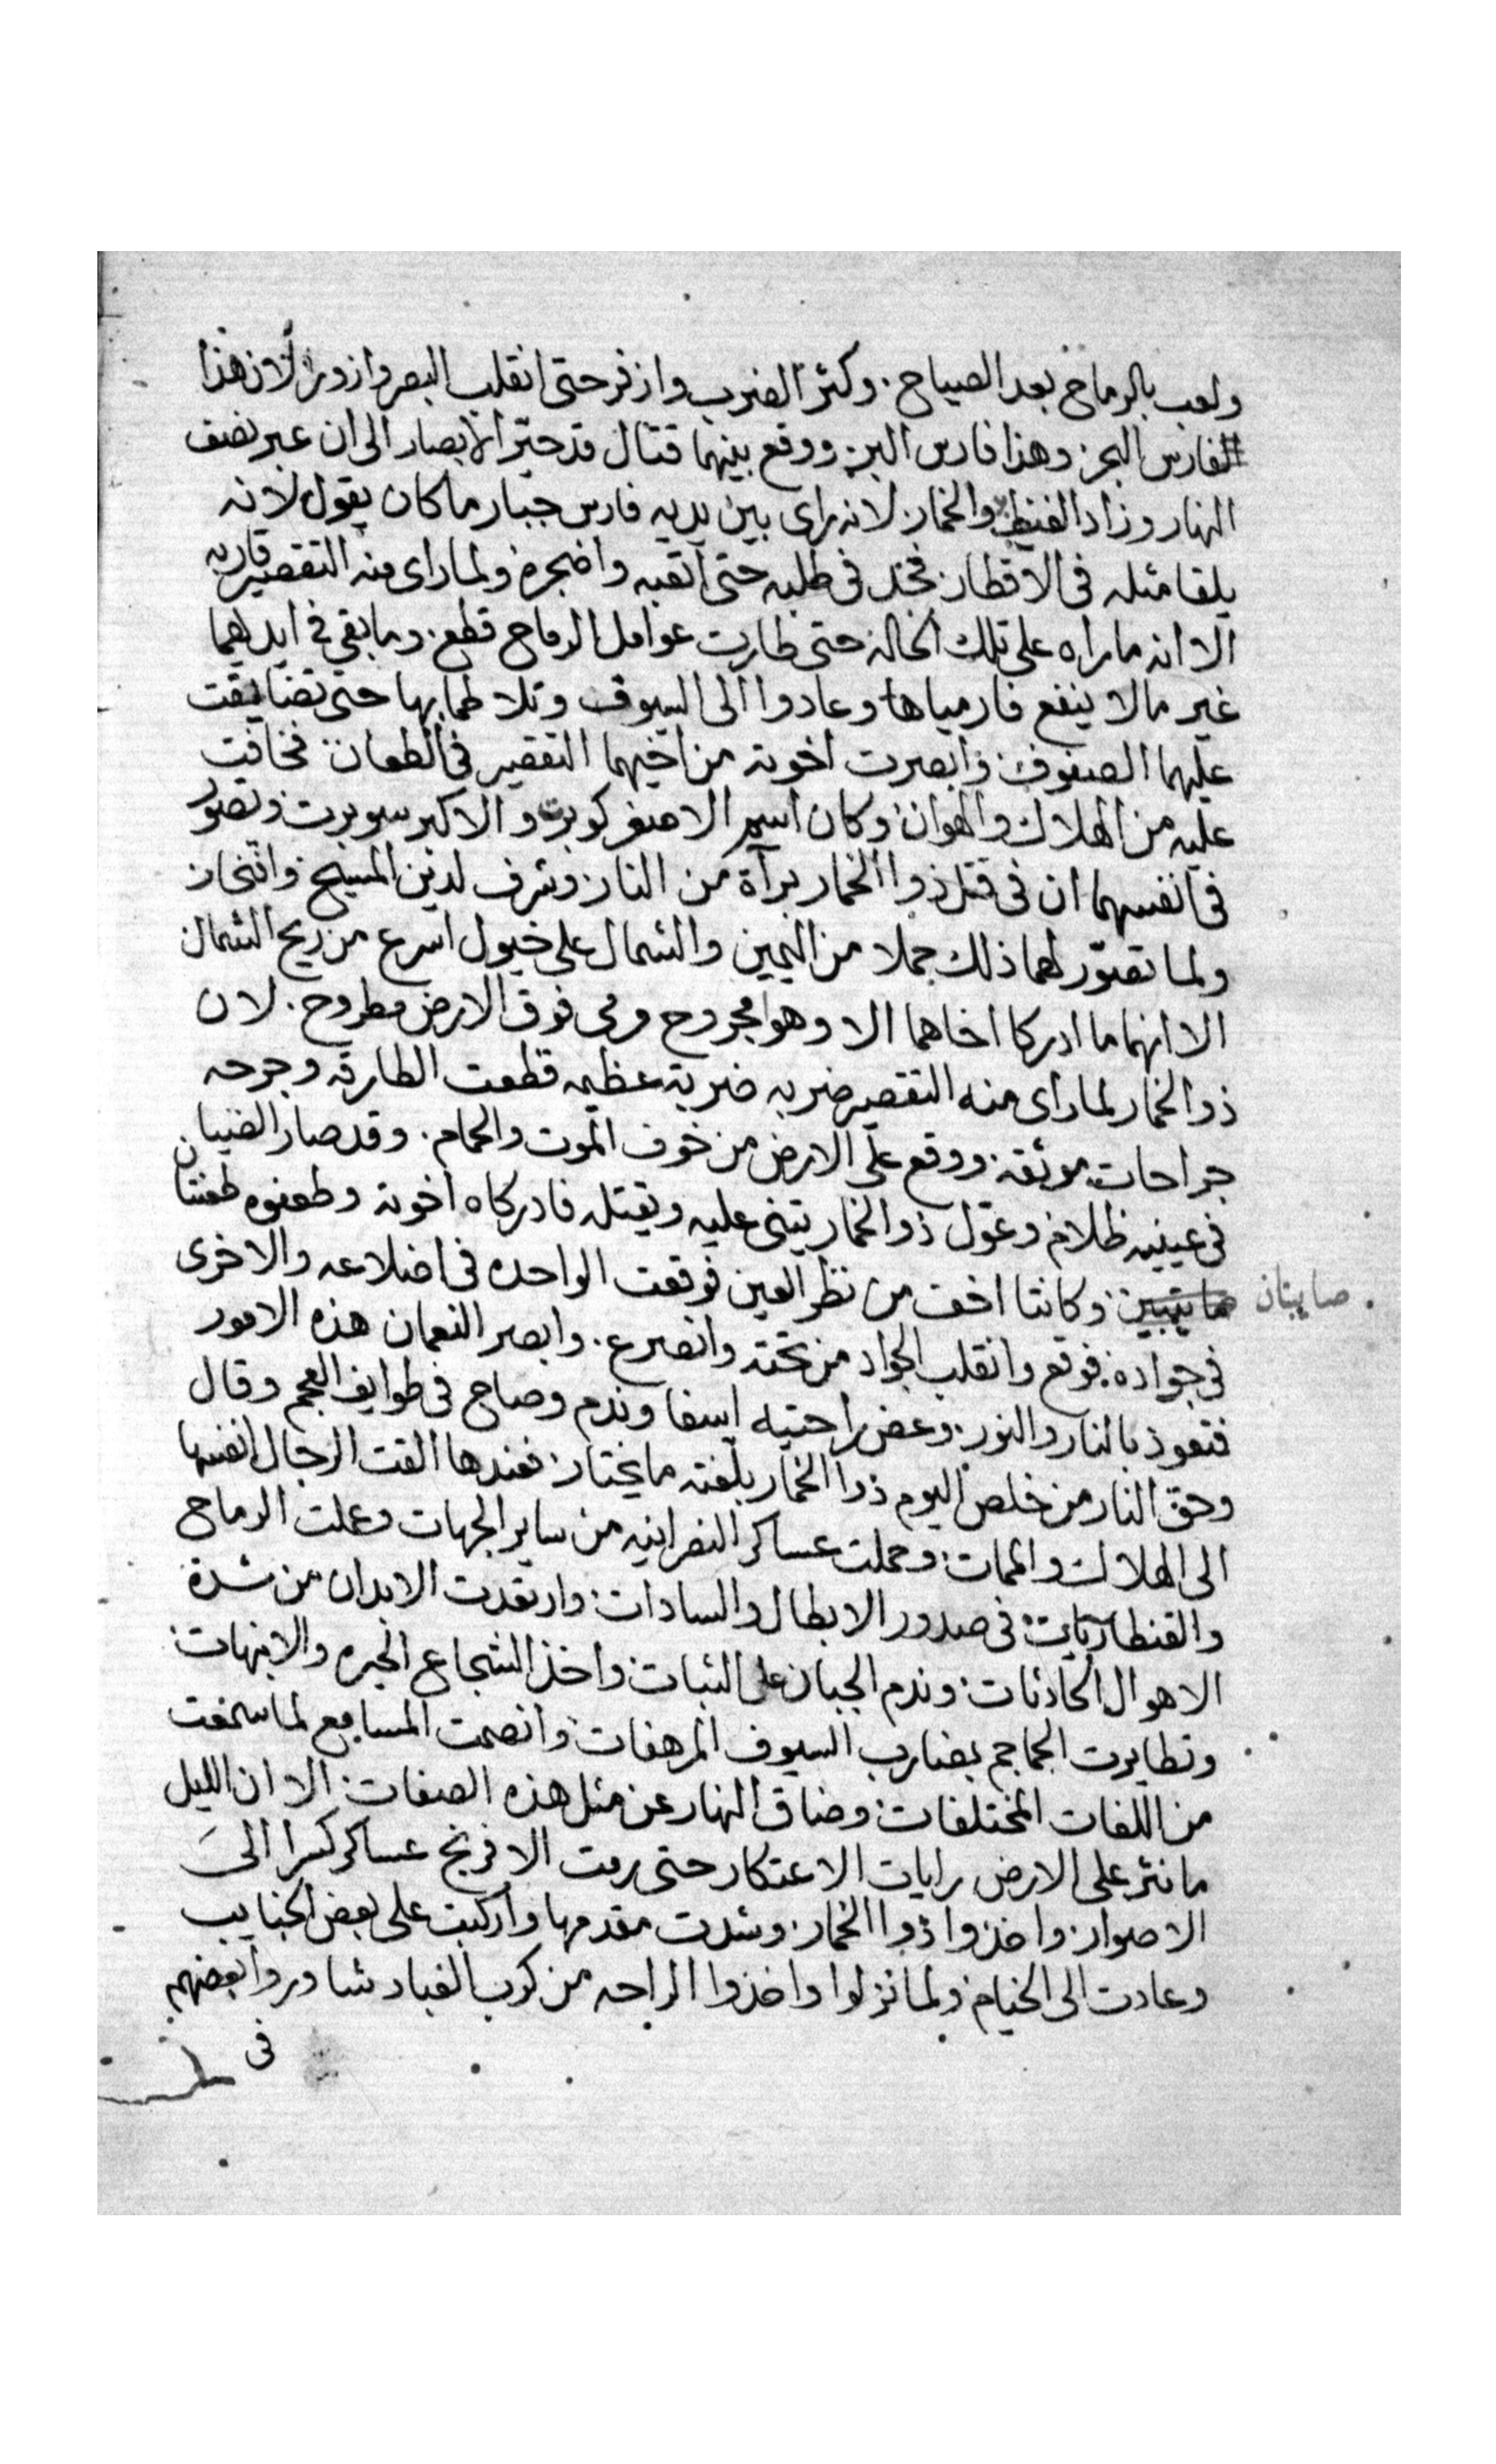 ولعب بالرماح بعد الصياح. وكثر الضرب وازفر حتى انقلب البصر وازور لان هذا
الفارس البحر وهذا فارس البر: ووقع بينهما قتال قد حيّر الابصار الى ان عبر نصف
النهار وزاد الغيظ والخمار: لانه راى بين يديه فارس جبار ما كان يقول لانه
يلقا مثله فى الاقطار: فجدّ فى طلبه حتى اتعبه واضجره ولما راى منه التقصير قاربه
الا انه ما راه على تلك الحاله حتى طارت عوامل الرماح قطع. وما بقى فى ايديهما
غير ما لا ينفع فارمياها وعادوا الى السيوف وتلاطما بها حتى تضايقت
عليهما الصفوف: وابصرت اخوته من اخيهما التقصير فى الطعان: فخافت
عليه من الهلاك والهوان: وكان اسم الاصغر كوبرت والاكبر سوبرت وتصوّر
فى انفسهما ان فى قتل ذوا الخمار برآة من النار: وشرف لدين المسيح وافتخار
ولما تصوّر لهما ذلك حملا من اليمين والشمال على خيول اسرع من ريح الشمال
الا انهما ما ادركا اخاهما الا وهو مجروح ومى فوق الارض مطروح. لان
ذوا الخمار لما راى منه التقصير ضربه ضربة عظيمه قطعت الطارقه وجرحه
جراحات موثقه: ووقع على الارض من خوف الموت والحمام. وقد صار الضيا
فى عينيه ظلام وعوّل ذوا الخمار يثنى عليه ويقتله فادركاه اخوته وطعنوه طعنتان
صايبتان وكانتا اخف من نظر العين فوقعت الواحده فى اضلاعه والاخرى
فى جواده: فوقع وانقلب الجواد من تحته وانصرع. وابصر النعمان هذه الامور
فتعوذ بالنار والنور: وعض راحتيه اسفا وندم وصاح فى طوايف العجم وقال
وحق النار من خلص اليوم ذوا الخمار بلّغته ما يختار: فعندها القت الرجال انفسها
الى الهلاك والممات: وحملت عساكر النصرانيه من ساير الجهات وعملت الرماح
والقنطاريات: فى صدور الابطال والسادات: وارتعدت الابدان من شدة
الاهوال الحادثات: وندم الجبان على الثبات: واخذ الشجاع الحيره والانبهات:
وتطايرت الجماجم بمضارب السيوف المرهفات: وانصمت المسامع لما سمعت
من اللغات المختلفات: وضاق النهار عن مثل هذه الصفات: الا ان الليل
ما نثر على الارض رايات الاعتكار حتى رمت الافرنج عساكر كسرا الى
الاصوار: واخذوا ذوا الخمار: وشدت مقدمها واركبت على بعض الجنايب
وعادت الى الخيام: ولما نزلوا واخذوا الراحه من كرب الغبار شاوروا بعضهم
فى